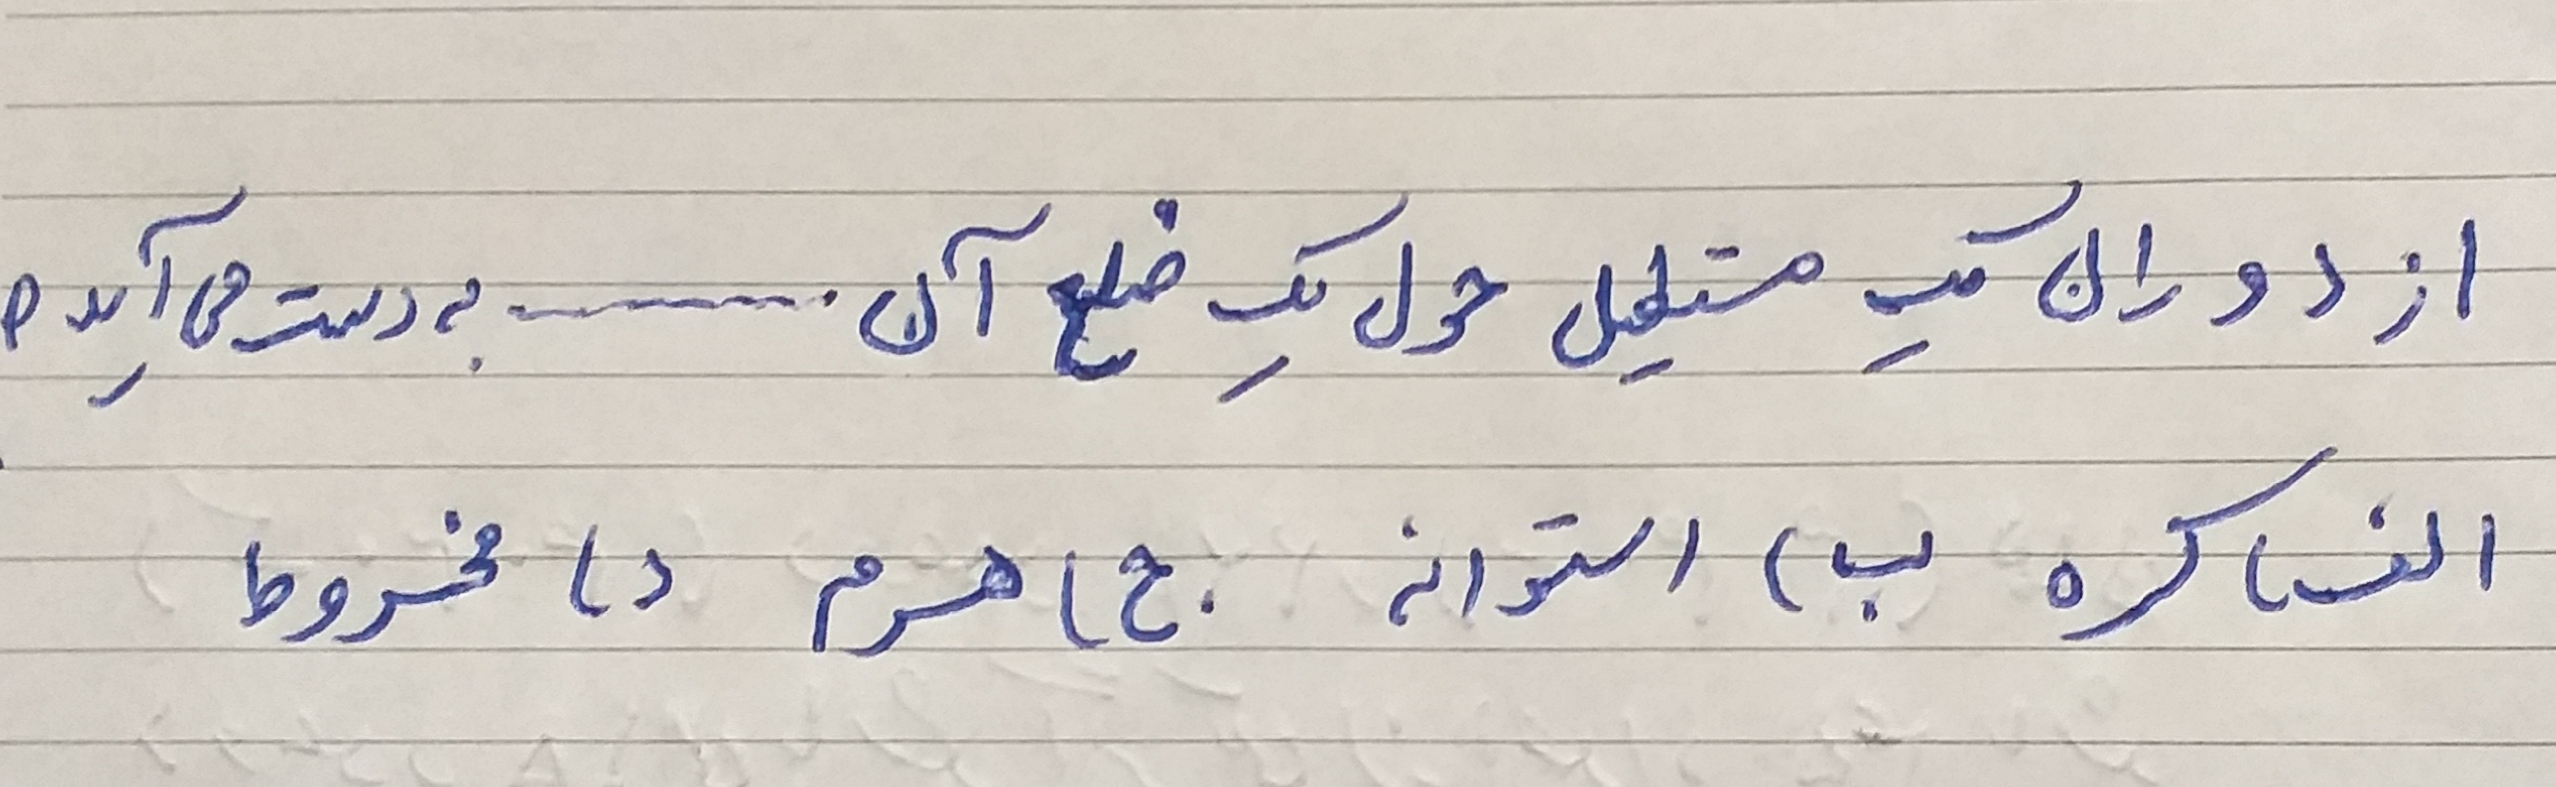 از دوران یک مستطیل حول یک ضلع آن ........ به دست می آید ه
الف) کره ب) استوانه ج) هرم د) مخروط